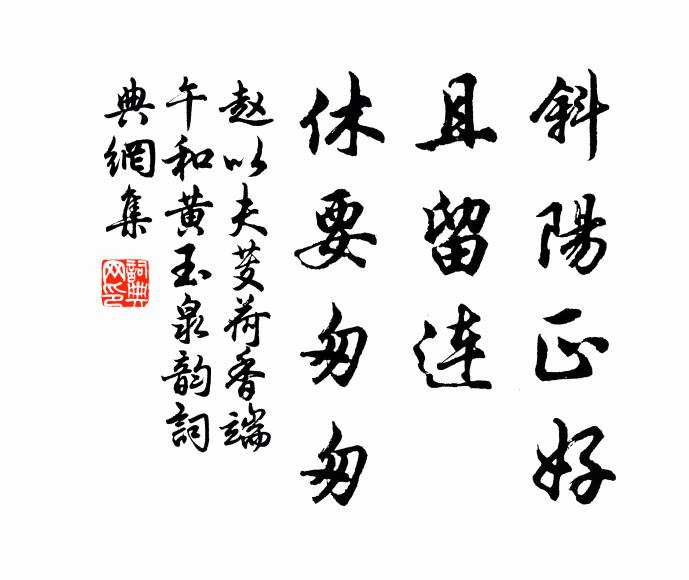 斜陽正好
且留連
休要匆匆
赵以夫芰荷香端
午和黄玉泉韵詞
典網集
詞典網印